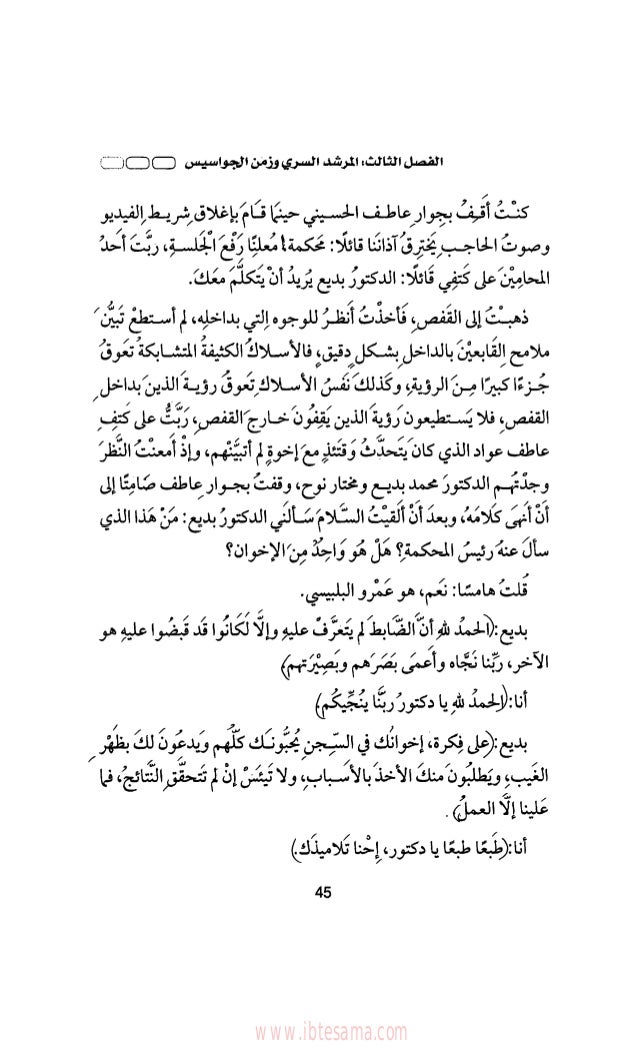 الفصل الثالث: المرشد السري وزمن الجواسيس
كنْتُ أقِفُ بجِوارِ عاطف الحسيني حينمَا قامَ بإغلاقِ شريطِ الفيديو
وصوتُ الحاجبِ يَخترِقُ آذانَنا قائلًا: محَكمة! مُعلنًا رَفْعَ الْجَلسةِ، ربَّتَ أحَدُ
المحامِيْنَ على كَتفِي قَائلًا: الدكتورُ بديع يُريدُ أنْ يَتكلَّمَ معَكَ.
ذهبْتُ إلى القَفصِ، فَأخذْتُ أَنظرُ للوجوه التي بداخلِه، لم أستطعْ تَبيُّنَ
ملامحِ القَابعيْنَ بالداخلِ بشكلٍ دقيقٍ، فالأسلاكُ الكثيفةُ المتشابكةُ تَعوقُ
جُزءًا كبيرًا مِنَ الرؤيةِ، وكَذلكَ نَفسُ الأسلاكِ تَعوقُ رؤيةَ الذينَ بداخلِ
القفصِ، فلا يَستطيعون رَؤيةَ الذين يَقِفُونَ خارجَ القفصِ، رَبَّتُّ على كَتفِ
عاطف عواد الذي كانَ يَتحدَّثُ وَقتَئذٍ معَ إخوةٍ لم أتبيَّنْهم، وإذْ أمعنْتُ النَّظرَ
وجدْتُهم الدكتورَ محمد بديع ومختار نوح، وقفتُ بجوارِ عاطف صَامِتًا إلى
أنْ أنهَى كَلامَهُ، وبعدَ أنْ ألقيْتُ السَّلامَ سَألَني الدكتورُ بديع: مَنْ هَذا الذي
سألَ عنهُ رئيسُ المحكمةِ؟ هَلْ هُو وَاحِدٌ مِنَ الإخوان؟
قُلتُ هامسًا: نعَم، هو عَمْرو البلبيسي.
بديع:(الحمدُ للهِ أنَّ الضَّابطَ لم يَتعرَّفْ عليهِ وإلَّا لَكَانُوا قَد قَبضُوا عليهِ هو
الآخر، ربِّنا نَجَّاه وأَعمَى بَصَرَهم وبَصِيْرَتهم)
أنا:(الحمدُ للهِ يا دكتورُ ربَّنا يِنَجِّيكُم)
بديع:(على فِكرة، إخوانُك في السِّجنِ يُحبُّونَك كلّهم ويَدعُونَ لكَ بظَهْرِ
الغَيبِ، ويَطلبُونَ منكَ الأخذَ بالأسبابِ، ولا تَيئَسْ إنْ لم تَتحقَّقِ النَّتائجُ، فما
عَلينا إلَّا العملُ).
أنا:(طَبعًا طبعًا يا دكتور، إحْنا تَلاميذَك.)
45
www.ibtesama.com